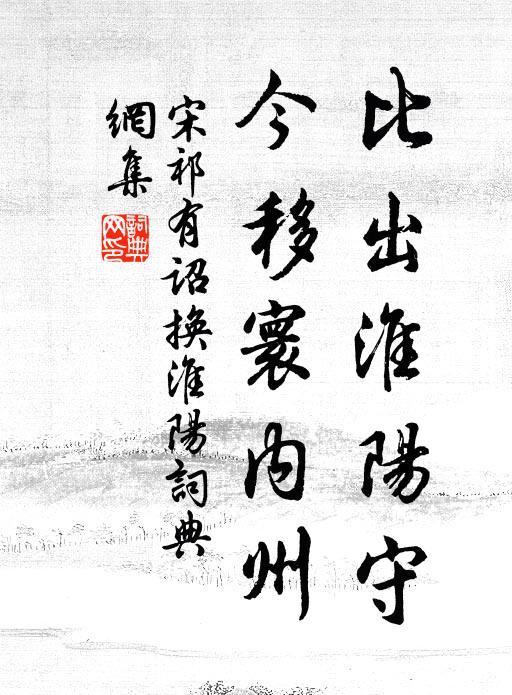 比出淮陽守
今移寰内州
宋祁有詔換淮陽詞典
網集
詞典網印